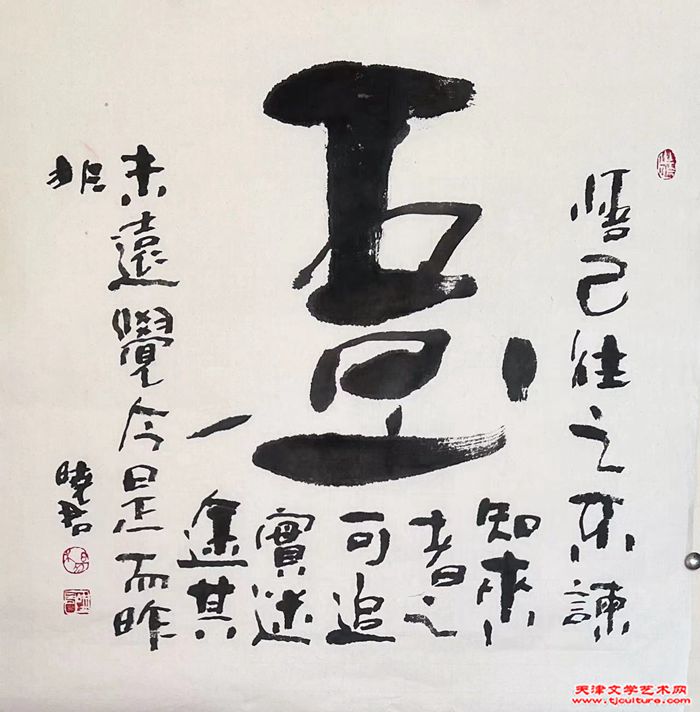 悟
悟已往之不諫
知來
者之
可追
實迷
途其
未遠覺今是而昨
非
曉君
天津文学艺术网
www.tjculture.com